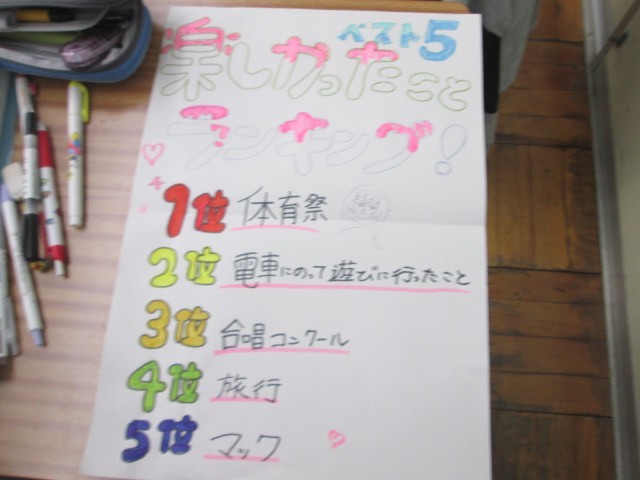 ベスト5
楽しかったこと
ランキング!
1位 体育祭
2位 電車にのって遊びに行ったこと
3位 合唱コンクール
4位 旅行
5位 マック